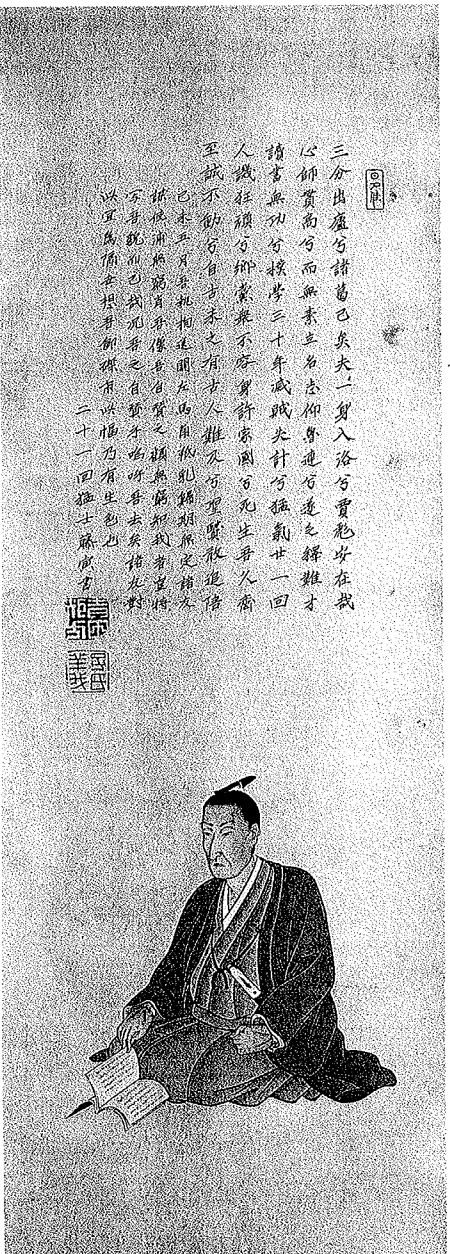 三分出廬兮諸葛已矣夫一身入洛兮賈彪安在哉
心師貫高兮而無素立名志仰魯連兮遂乏釋難才
讀書無功兮樸學三十年滅賊失計兮猛氣廿一回
人譏狂頑兮郷黨衆不容身許家國兮死生吾久齊
至誠不動兮自古未之有古人難及兮聖賢敢追陪
己未五月吾執拘送關左 期無定諸友
謀使浦無窮肖吾像吾自贊之顧無窮知我者豈特
写吾貌而已哉况吾之自贊乎嗚呼吾去矣諸友對
吾即磔市此幅乃有生色也
二十一回猛士藤寅書